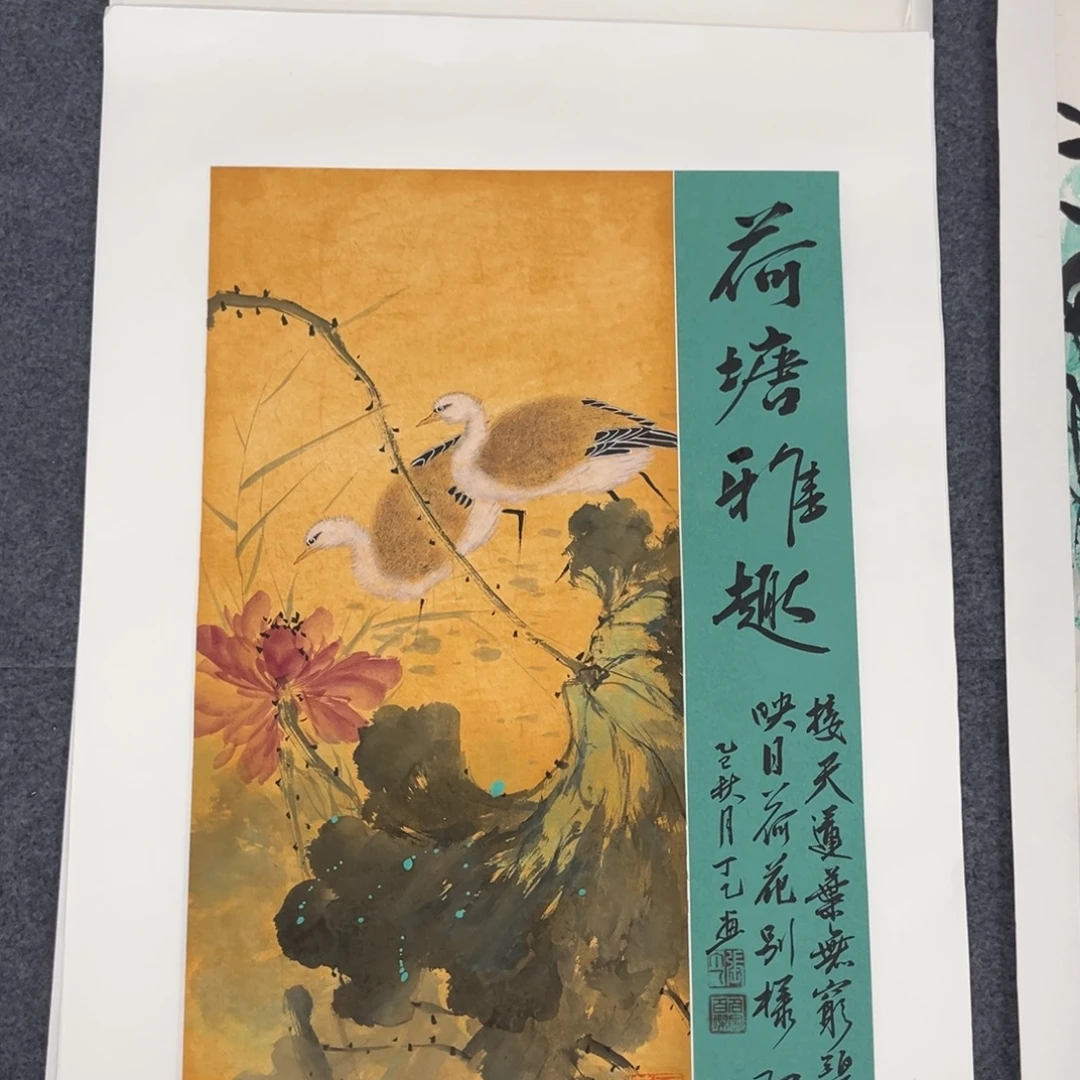 荷塘雅趣
接天蓮葉無窮碧
映日荷花別樣
乙巳秋月丁乙畫